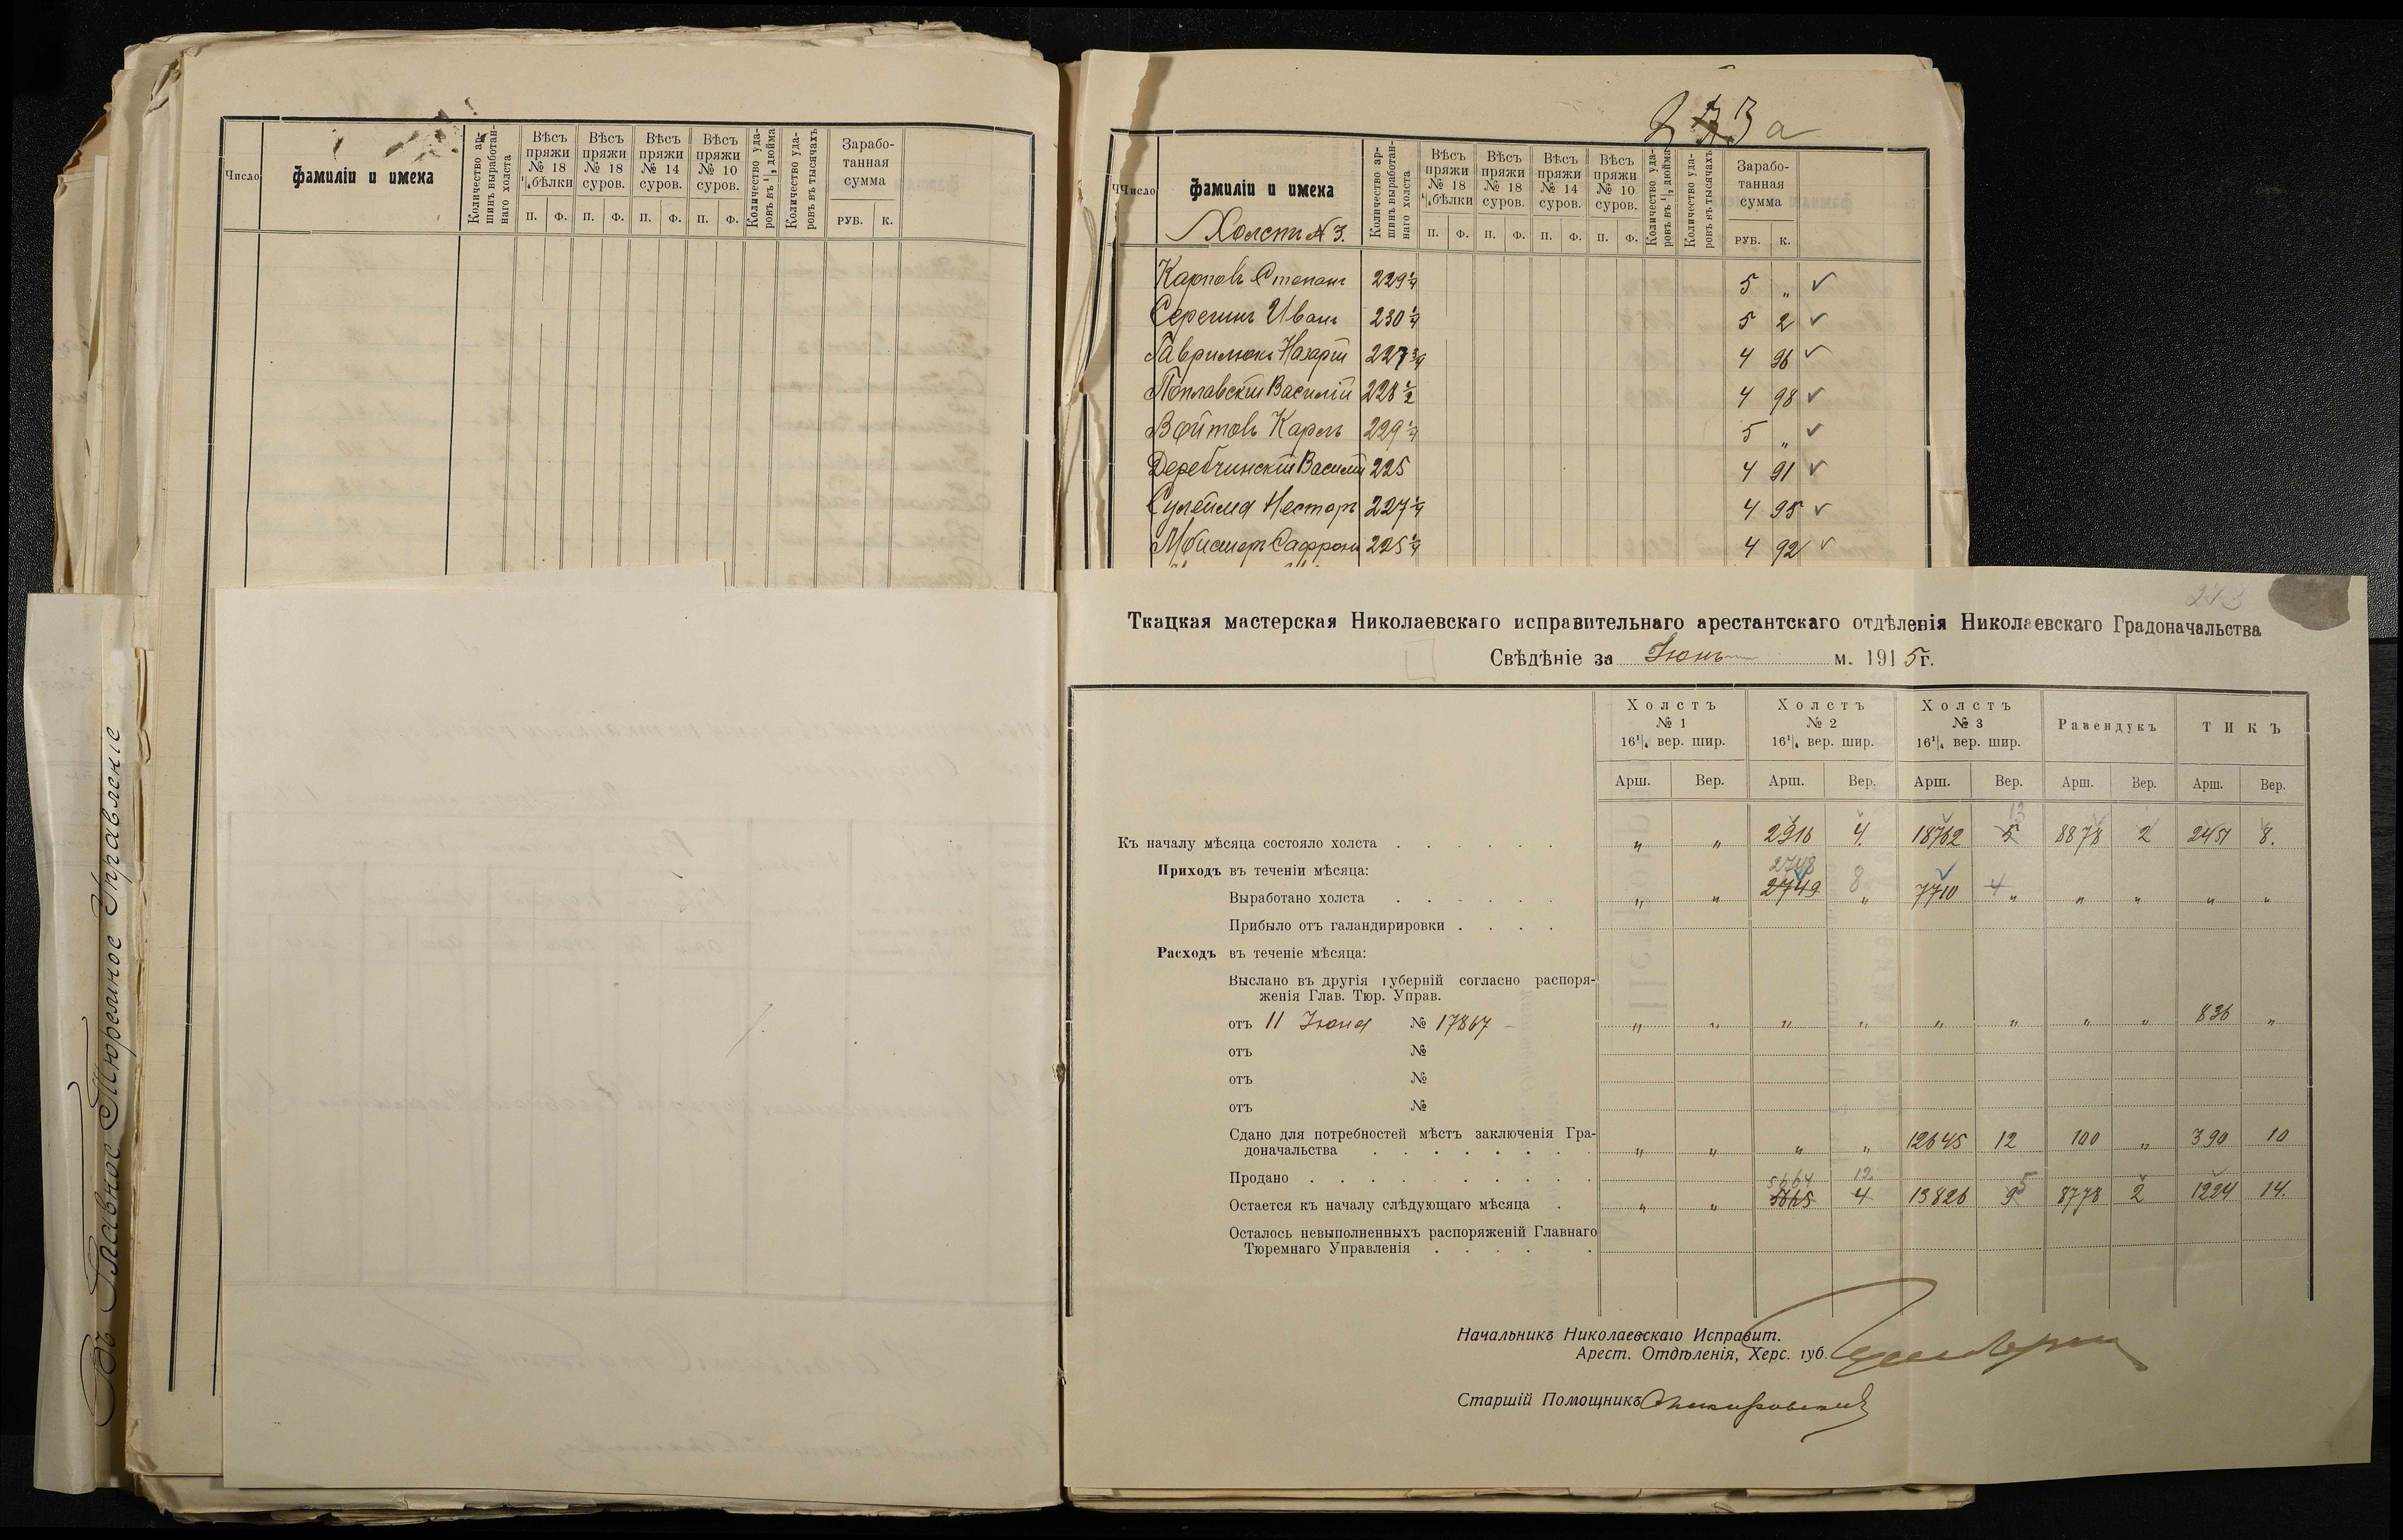 Число
фамиліи и имена
Количество ар-
шинъ выработан-
наго холста
Вѣсъ
пряжи
№ 18
¹/₄бѣлки
Вѣсъ
пряжи
№ 18
суров.
Вѣсъ
пряжи
№ 14
суров.
Вѣсъ
пряжи
№ 10
суров.
П. Ф. П. Ф. П. Ф. П. Ф.
Количество уда-
ровъ въ ¹/₂ дюйма
Количество уда-
ровъ въ тысячахъ
Зарабо-
танная
сумма
РУБ. К.
Въ Главное Тюремное Управленіе
233 а
Число
фамиліи и имена
Холстъ № 3.
Количество ар-
шинъ выработан-
наго холста
Вѣсъ
пряжи
№ 18
¹/₄бѣлки
Вѣсъ
пряжи
№ 18
суров.
Вѣсъ
пряжи
№ 14
суров.
Вѣсъ
пряжи
№ 10
суров.
П. Ф. П. Ф. П. Ф. П. Ф.
Количество уда-
ровъ въ ¹/₂ дюйма
Количество уда-
ровъ въ тысячахъ
Зарабо-
танная
сумма
РУБ. К.
Карповъ Степанъ 229 ¼ 5 „ ✓
Серегинъ Иванъ 230 ¼ 5 2 ✓
Гаврилюкъ Назарій 227 ¾ 4 96 ✓
Поплавскій Василій 228 ½ 4 98 ✓
Войтовъ Карпъ 229 ¼ 5 „ ✓
Деребчинскій Василій 225 4 91 ✓
Сулейма Несторъ 227 ¼ 4 95 ✓
Сафронъ 225 ¼ 4 92 ✓
243
Ткацкая мастерская Николаевскаго исправительнаго арестантскаго отдѣленія Николаевскаго Градоначальства
Свѣдѣніе за Іюнь м. 1915 г.
Холстъ
№ 1
16¹/₄ вер. шир.
Холстъ
№ 2
16¹/₄ вер. шир.
Холстъ
№ 3
16¹/₄ вер. шир.
Равендукъ
ТИКЪ
Арш. Вер. Арш. Вер. Арш. Вер. Арш. Вер. Арш. Вер.
13
Къ началу мѣсяца состояло холста . . . . . . „ „ 2916 4. 18762 5 8878 2 2451 8.
Приходъ въ теченіи мѣсяца:
2748 8
Выработано холста . . . . . . „ „ 2749 „ 7710 4 „ „ „ „ „
Прибыло отъ галандрировки . . . .
Расходъ въ теченіе мѣсяца:
Выслано въ другія губерній согласно распоря-
женія Глав. Тюр. Управ.
отъ 11 Іюня № 17867 „ „ „ „ „ „ „ „ 836 „
отъ №
отъ №
отъ №
Сдано для потребностей мѣстъ заключенія Гра-
доначальства . . . . . . . . „ „ „ „ 12645 12 100 „ 390 10
Продано . . . . . . . . . .
5664 12. 5
Остается къ началу слѣдующаго мѣсяца . „ „ 5665 4 13826 9 8778 2 1224 14.
Осталось невыполненныхъ распоряженій Главнаго
Тюремнаго Управленія . . . . .
Начальникъ Николаевскаго Исправит.
Арест. Отдѣленія, Херс. губ.
Старшій Помощникъ